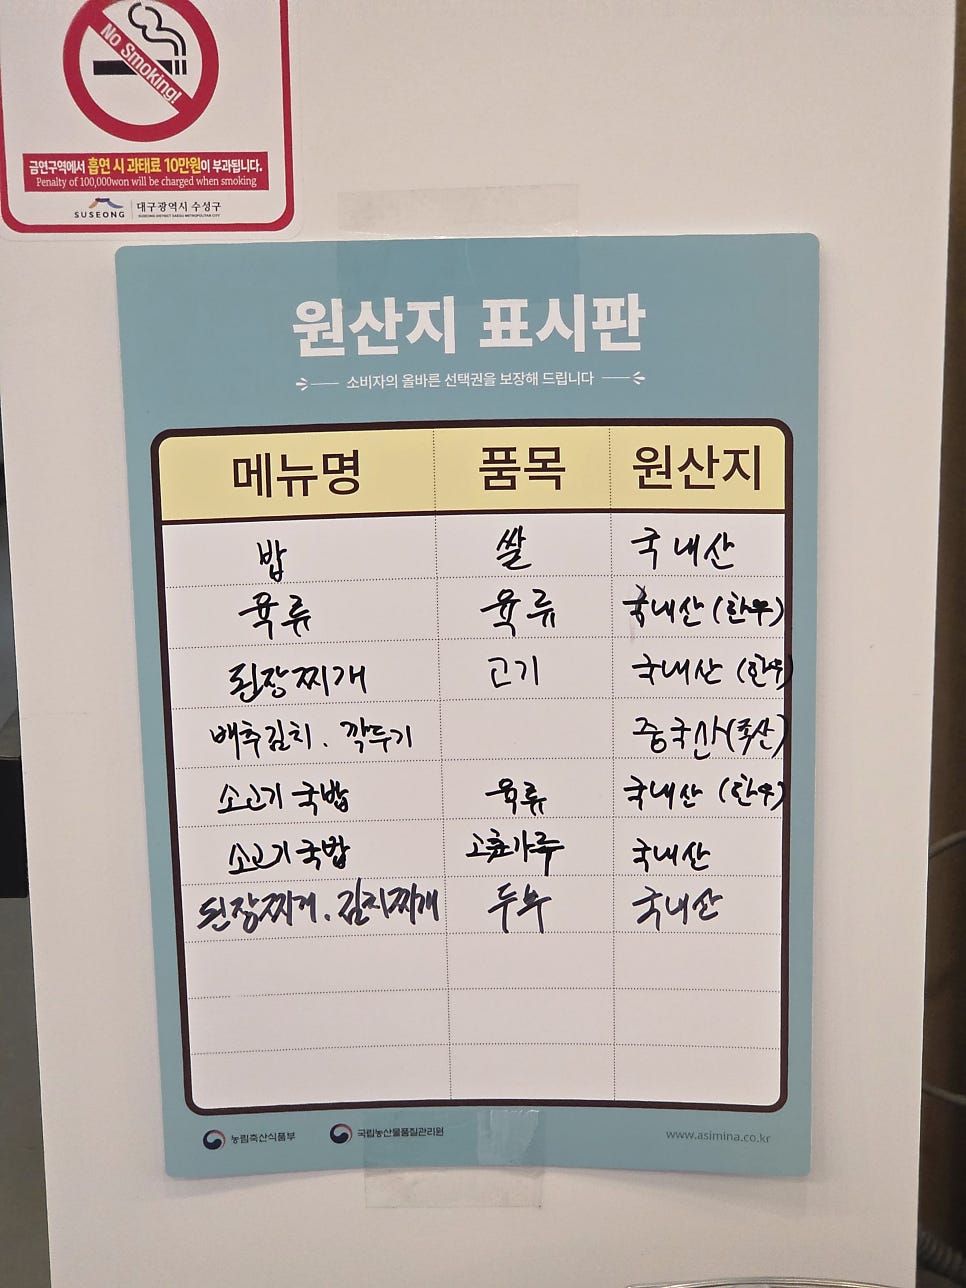 No Smoking!
금연구역에서 흡연 시 과태료 10만원이 부과됩니다.
Penalty of 100,000won will be charged when smoking
SUSEONG 대구광역시 수성구
SUSEONG DISTRICT DAEGU METROPOLITAN CITY
원산지 표시판
소비자의 올바른 선택권을 보장해 드립니다
메뉴명 품목 원산지
밥 쌀 국내산
육류 육류 국내산 (한우)
된장찌개 고기 국내산 (한우)
배추김치. 깍두기 중국산
소고기 국밥 육류 국내산 (한우)
소고기 국밥 고춧가루 국내산
된장찌개. 김치찌개 두부 국내산
농림축산식품부 국립농산물품질관리원 www.asimina.co.kr